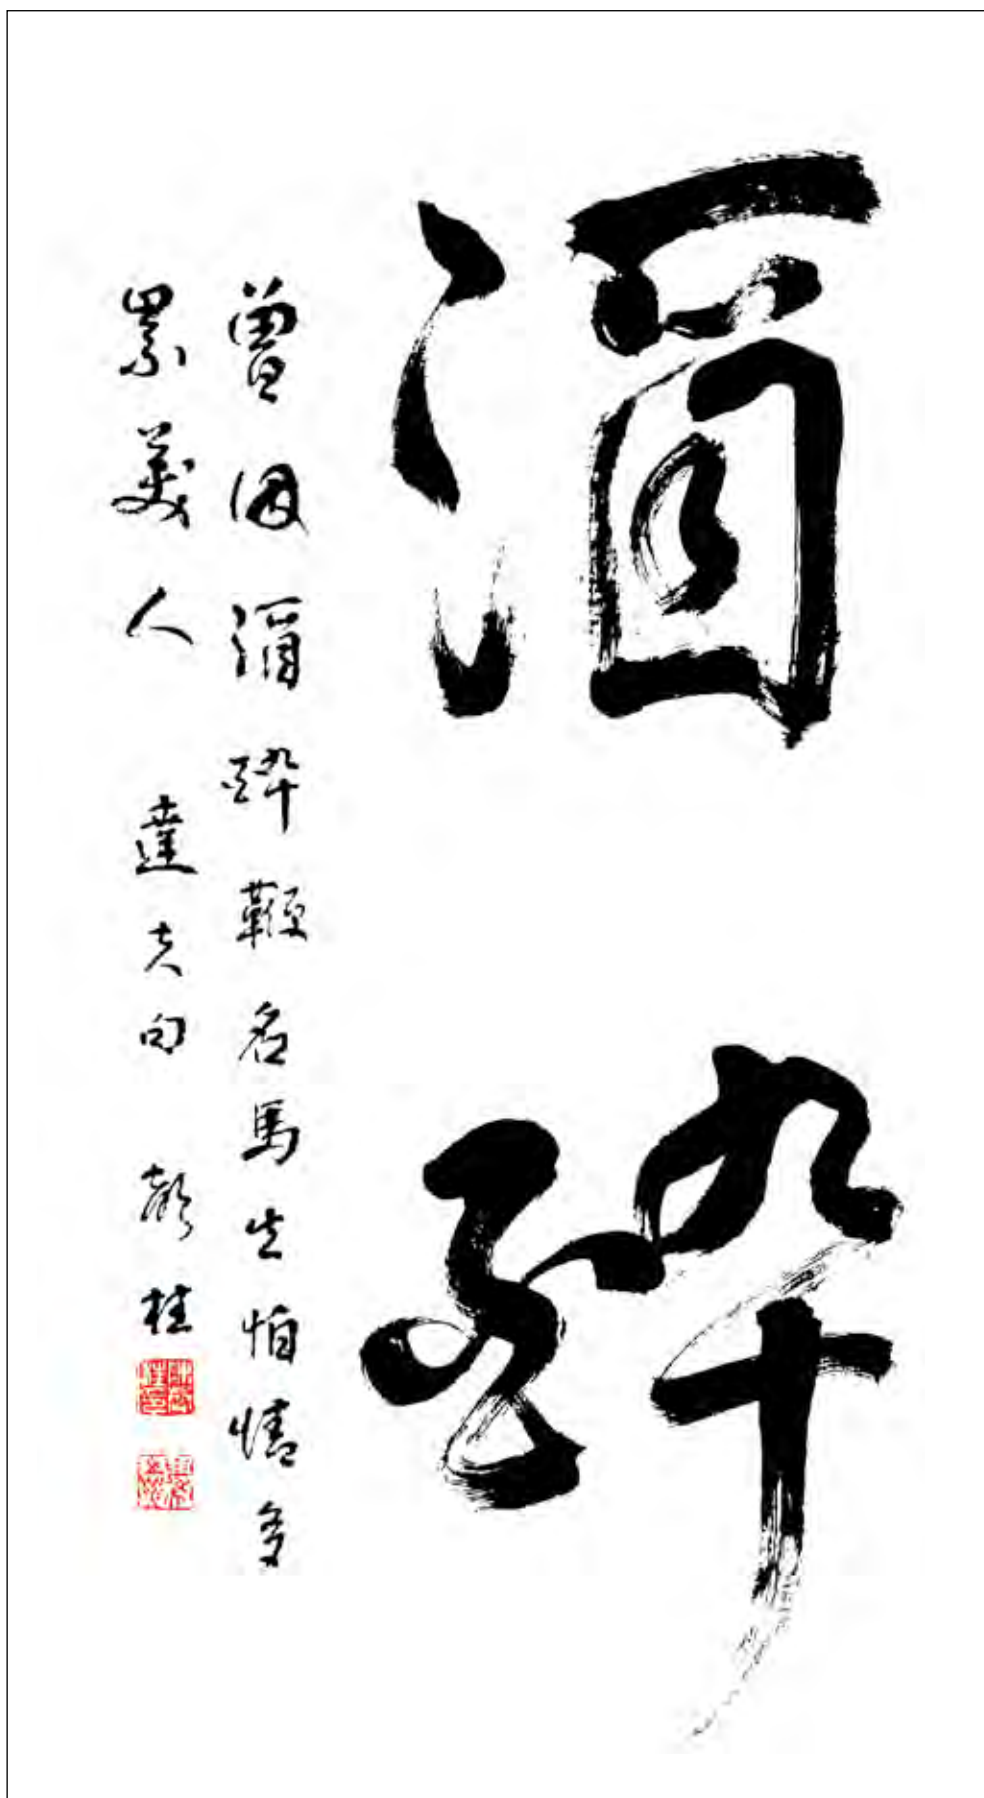 酒醉
曾因酒醉鞭名馬生怕情多
累美人 達夫句 桂